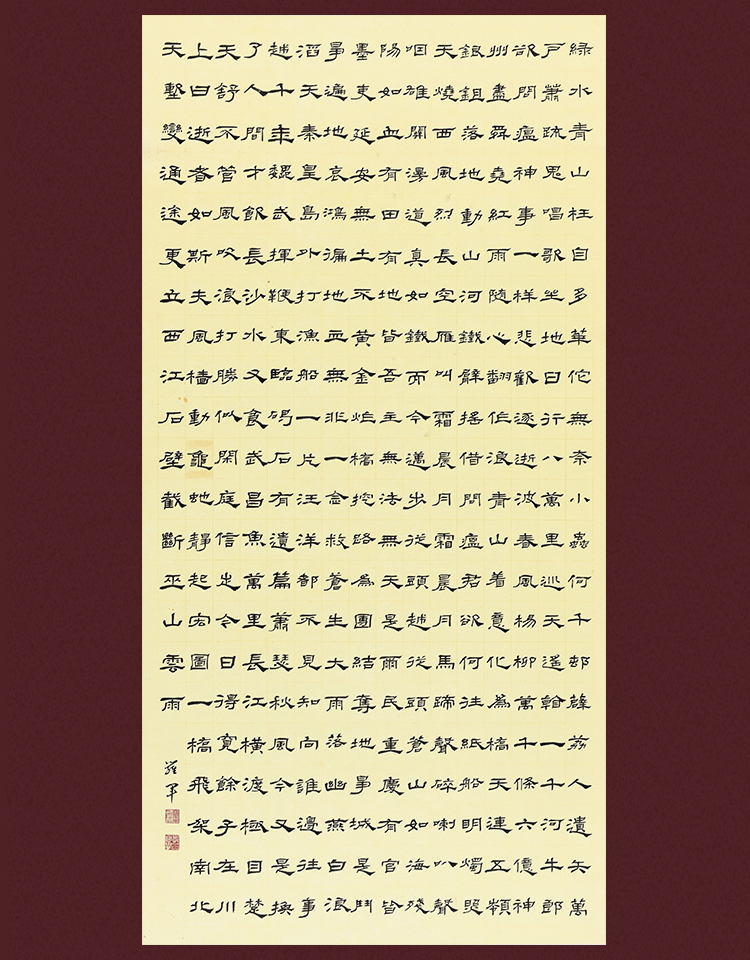 綠水青山枉自多華佗無奈小蟲何千邨薜荔人遺矢萬
戶蕭疏鬼唱歌坐地日行八萬里巡天遙看一千河牛郎
欲問瘟神事一樣悲歡逐逝波春風楊柳萬千條六億神
州盡舜堯紅雨隨心翻作浪青山着意化為橋天連五嶺
銀鉏落地動山河鐵臂搖借問瘟君欲何往紙船明燭照
天燒西風烈長空雁叫霜晨月霜晨月馬蹄聲碎喇叭聲
咽雄關漫道真如鐵而今邁步從頭越從頭蒼山如海殘
陽如血有田有地皆吾主無法無天是爾民重慶有官皆
墨吏延安無土不黃金炸橋挖路為團結奪地事城是鬥
事遍地哀鴻遍地血無非一念救蒼生大雨落幽燕白浪
滔天秦皇島外打漁船一片汪洋都不見知向誰邊往事
越千年魏武揮鞭東臨碣石有遺篇蕭瑟秋風今又是換
了人間才飲長沙水又食武昌魚萬里長江橫渡極目楚
天舒不管風吹浪打勝似閑庭信步今日得寬餘子在川
上曰逝者如斯夫風檣動龜蛇靜起宏圖一橋飛架南北
天塹變通途更立西江石壁截斷巫山雲雨